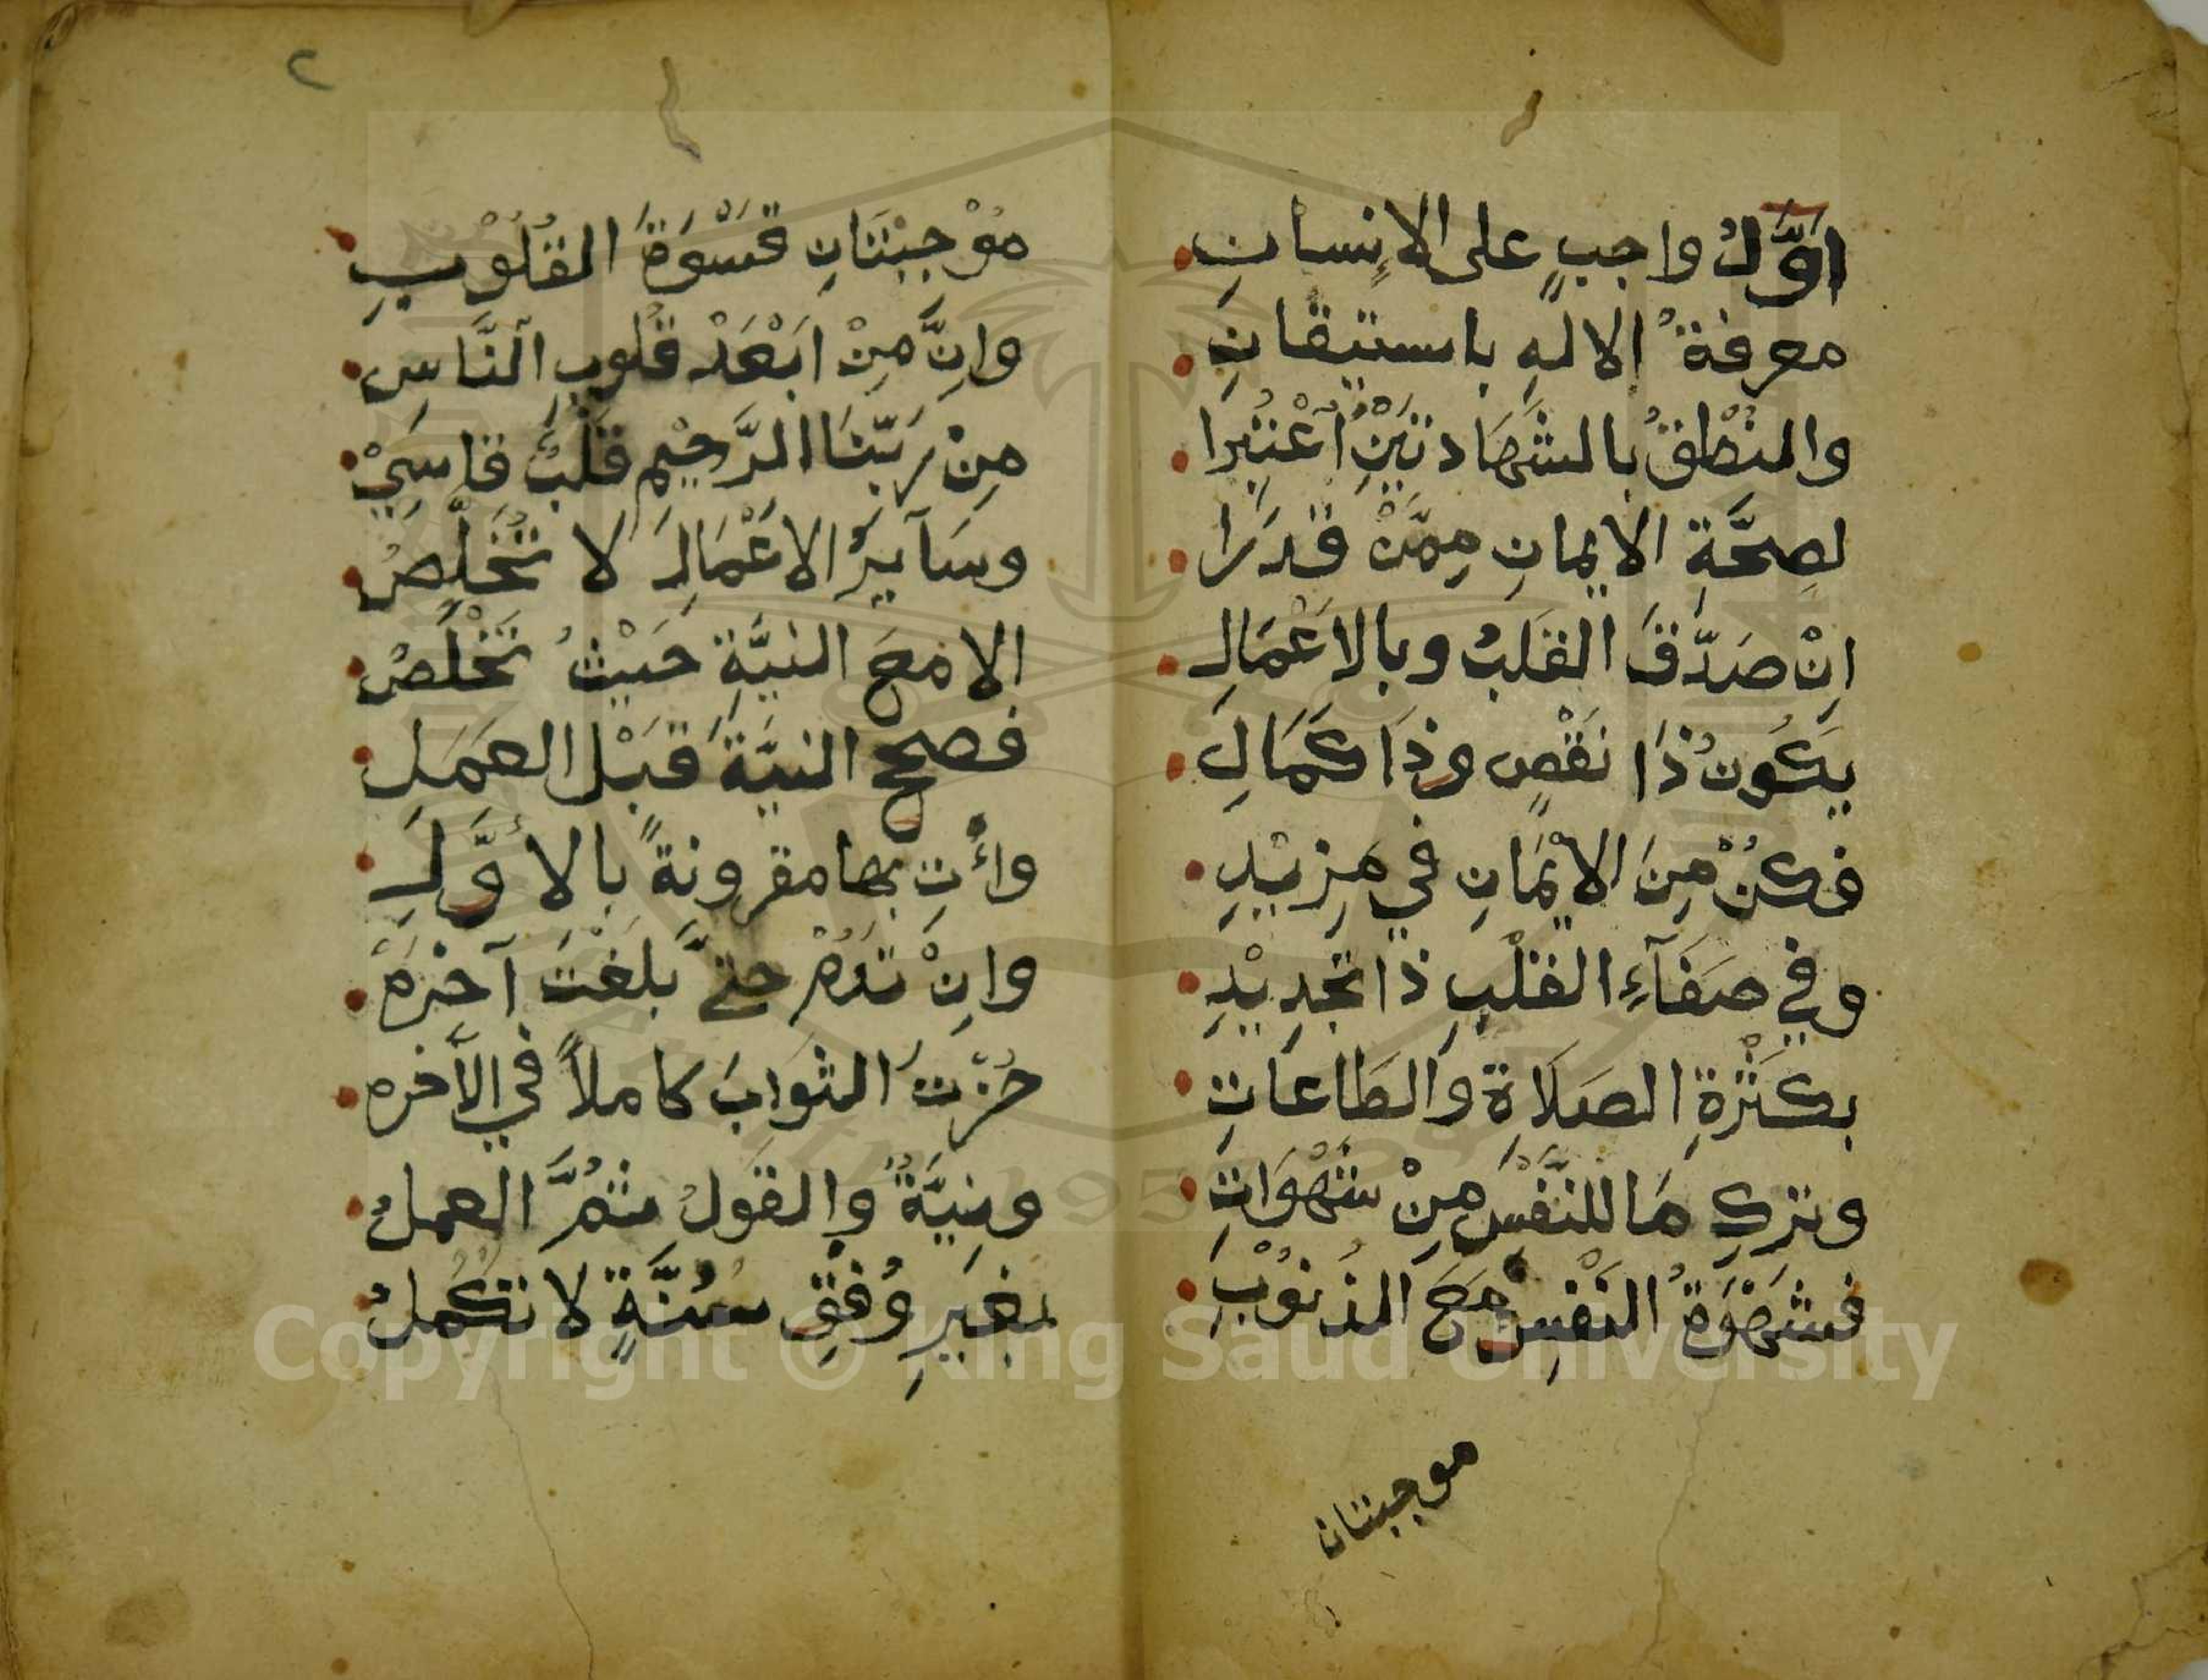 اَوَّلُ واجبٍ على الاِنسانِ
معرفةُ الالهِ باستيقانِ
والنُطْقُ بالشَهَادتَيْنِ اُعْتُبِرا
لصِحَّةِ الايمانِ مِمَّنْ قدَرَا
اِنْ صَدَّقَ القَلبُ وبالاَعْمَالِ
يَكُونُ ذَا نَقْصٍ وذَا كَمَالِ
فكُنْ مِنَ الاِيْمَانِ في مَزِيْدِ
وفي صَفَآءِ القلْبِ ذَا تجْدِيْدِ
بكَثْرةِ الصَلَاةِ والطَاعاتِ
وتركِ مَا للنَّفْسِ مِنْ شَهْوَاتِ
فشَهْوَةُ النَفْسِ مَعَ الذُنوُبِ
موجبتان
٢
مُوْجِبْتَانِ قَسْوَةَ القُلُوْبِ
واِنَّ مِنْ ابَْعَدْ قُلُوبِ النَّاسِ
مِنْ رَبّنَا الرَّحِيْمِ قَلْبٌ قَاسِيْ
وسَآيرُ الاَعْمَالِ لَا تُخَلِّصُ
الا مَعَ النيَّةِ حَيْثُ تَخْلُصُ
فصحح النيَّةَ قَبْلَ العمَلِ
وأْتِ بها مقرونةً بالأوَّلِ
واِنْ تَدُمْ حتَّ بَلغْتَ آخِرَهْ
حُزْتَ الثوَابَ كاملاً في الآخره
ونِيَّةٌ والقَولُ ثمَّ العملُ
بغَيرِ وُفْقِ سُنَّةٍ لا تَكْمُلُ
Copyright © King Saud University